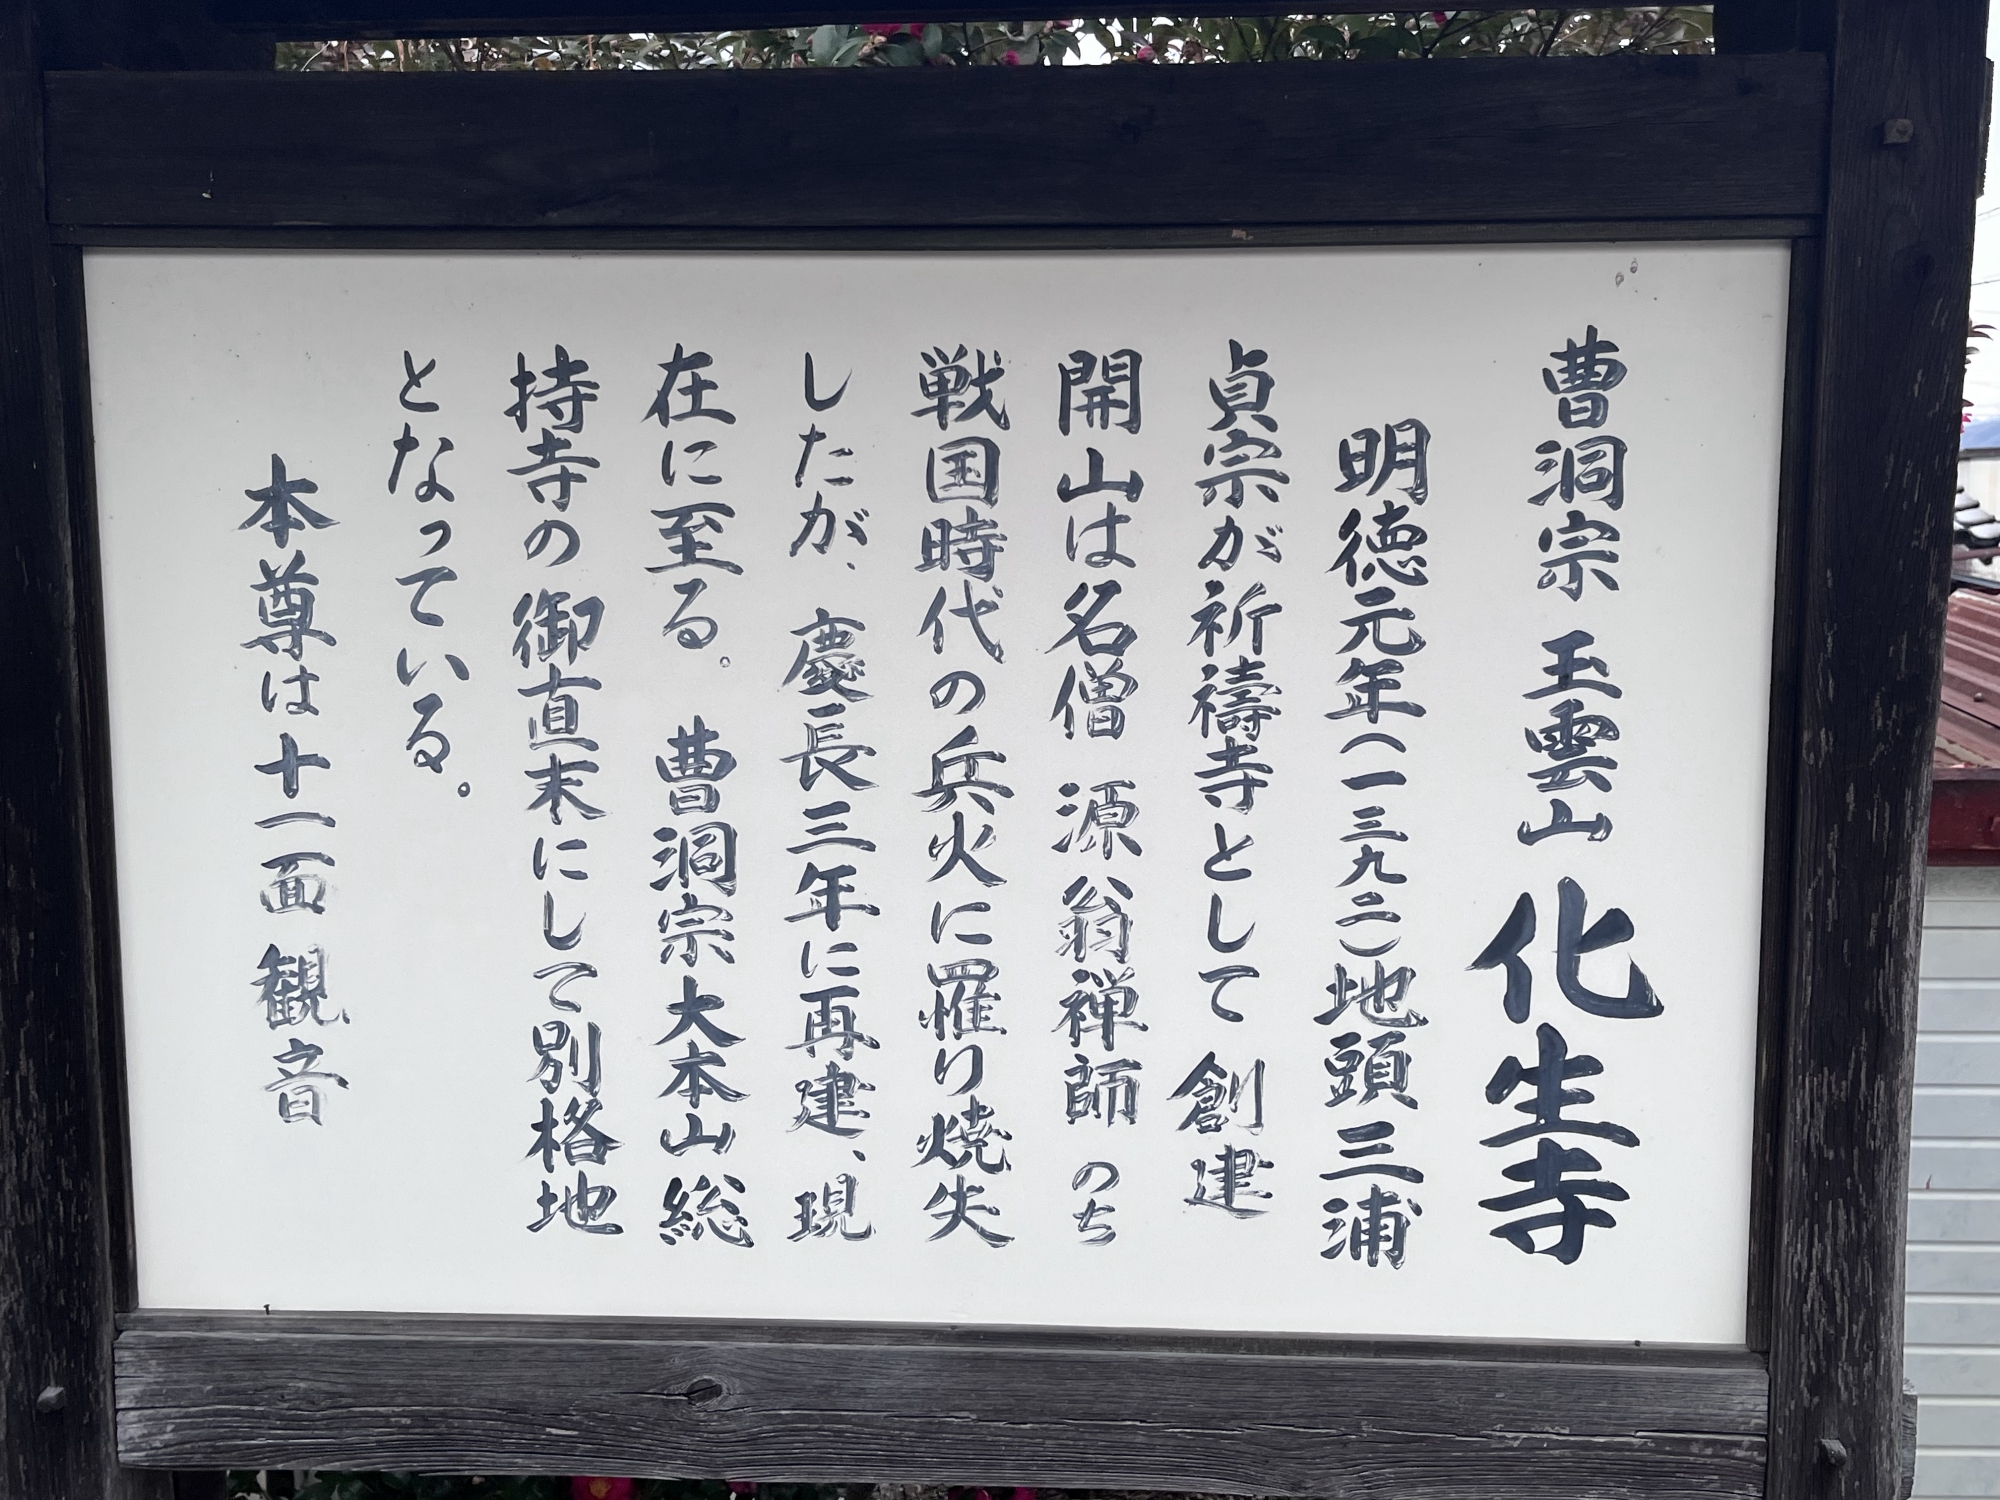 曹洞宗 玉雲山 化生寺
明徳元年（一三九二）地頭三浦
貞宗が祈禱寺として 創建
開山は名僧 源翁禅師 のち
戦国時代の兵火に罹り焼失
したが、慶長三年に再建、現
在に至る。 曹洞宗大本山総
持寺の御直末にして別格地
となっている。
本尊は十一面観音